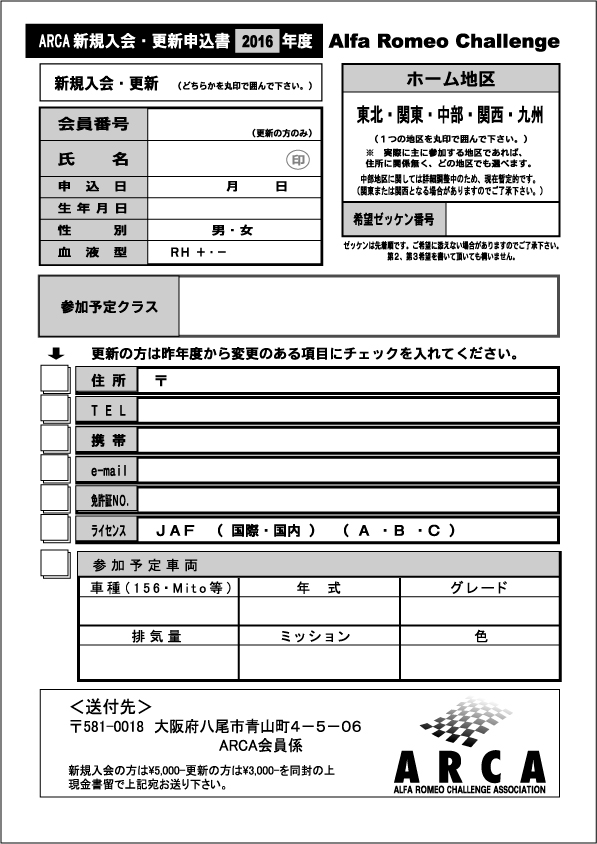 ARCA 新規入会・更新申込書 2016 年度 Alfa Romeo Challenge
新規入会・更新 （どちらかを丸印で囲んで下さい。）
会員番号 （更新の方のみ）
氏 名 印
申 込 日 月 日
生 年 月 日
性 別 男・女
血 液 型 RH ＋・－
ホーム地区
東北・関東・中部・関西・九州
（１つの地区を丸印で囲んで下さい。）
※ 実際に主に参加する地区であれば、
住所に関係無く、どの地区でも選べます。
中部地区に関しては詳細調整中のため、現在暫定的です。
（関東または関西となる場合がありますのでご了承下さい。）
希望ゼッケン番号
ゼッケンは先着順です。ご希望に添えない場合がありますのでご了承下さい。
第２、第３希望を書いて頂いても構いません。
参加予定クラス
更新の方は昨年度から変更のある項目にチェックを入れてください。
住 所 〒
T E L
携 帯
e-mail
免許証NO.
ライセンス ＪＡＦ （ 国際・国内 ） （ Ａ ・Ｂ ・Ｃ ）
参 加 予 定 車 両
車種（156・Mito等） 年 式 グレード
排 気 量 ミッション 色
＜送付先＞
〒581-0018 大阪府八尾市青山町４－５－０６
ARCA会員係
新規入会の方は¥5,000-更新の方は¥3,000-を同封の上
現金書留で上記宛お送り下さい。
ARCA
ALFA ROMEO CHALLENGE ASSOCIATION